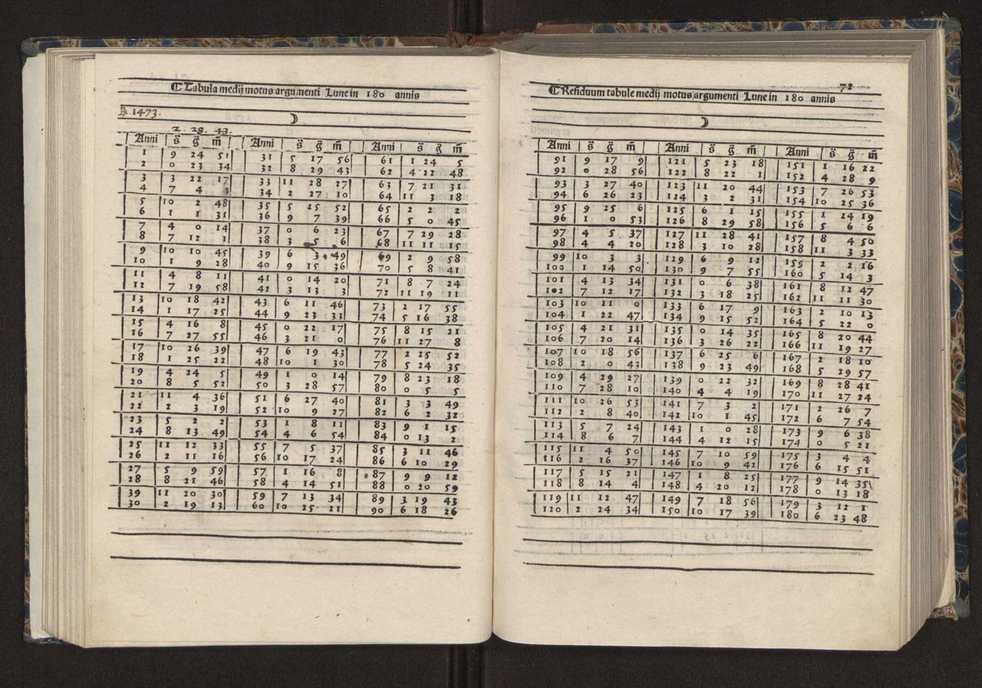 ☾ Tabula medij motus argumenti Lune in 180 annis
1473.
☽
2. 28. 43.
Anni s̄ ḡ m̄ Anni s̄ ḡ m̄ Anni s̄ ḡ m̄
1 9 24 51 31 5 17 56 61 1 24 5
2 0 23 34 32 8 29 43 62 4 22 48
3 3 22 17 33 11 28 27 63 7 21 31
4 7 4 3 34 2 27 10 64 11 3 18
5 10 2 48 35 5 25 52 65 2 2 2
6 1 1 31 36 9 7 39 66 5 0 45
7 4 0 14 37 0 6 23 67 7 29 28
8 7 12 1 38 3 5 6 68 11 11 15
9 10 10 45 39 6 3 49 69 2 9 58
10 1 9 28 40 9 15 36 70 5 8 41
11 4 8 11 41 0 14 20 71 8 7 24
12 7 19 58 42 3 13 3 72 11 19 11
13 10 18 42 43 6 11 46 73 2 17 55
14 1 17 25 44 9 23 31 74 5 16 38
15 4 16 8 45 0 22 17 75 8 15 21
16 7 27 55 46 3 21 0 76 11 27 8
17 10 26 39 47 6 19 43 77 2 25 52
18 1 25 22 48 10 1 30 78 5 24 35
19 4 24 5 49 1 0 14 79 8 23 18
20 8 5 52 50 3 28 57 80 0 5 5
21 11 4 36 51 6 27 40 81 3 3 49
22 2 3 19 52 10 9 27 82 6 2 32
23 5 2 2 53 1 8 11 83 9 1 15
24 8 13 49 54 4 6 54 84 0 13 2
25 11 12 33 55 7 5 37 85 3 11 46
26 2 11 16 56 10 17 24 86 6 10 29
27 5 9 59 57 1 16 8 87 9 9 12
28 8 21 46 58 4 14 51 88 0 20 59
39 11 20 30 59 7 13 34 89 3 19 43
30 2 19 13 60 10 25 21 90 6 18 26
72
☾ Residuum tabule medij motus argumenti Lune in 180 annis
☽
Anni s̄ ḡ m̄ Anni s̄ ḡ m̄ Anni s̄ ḡ m̄
91 9 17 9 121 5 23 18 151 1 16 22
92 0 28 56 122 8 22 1 152 4 28 9
93 3 27 40 123 11 20 44 153 7 26 53
94 6 26 23 124 3 2 31 154 10 25 36
95 9 25 6 125 6 1 15 155 1 24 19
96 1 0 53 126 8 29 58 156 5 6 6
97 4 5 37 127 11 28 41 157 8 4 50
98 4 4 20 128 3 10 28 158 11 3 33
99 10 3 3 129 6 9 12 155 2 2 16
100 1 14 50 130 9 7 55 160 5 14 3
101 4 13 34 131 0 6 38 161 8 12 47
102 7 12 17 132 3 18 25 162 11 11 30
103 10 11 0 133 6 17 9 163 2 10 13
104 1 22 47 134 9 15 52 164 5 22 0
105 4 21 31 135 0 14 35 165 8 20 44
106 7 20 14 136 3 26 22 166 11 19 27
107 10 18 56 137 6 25 6 167 2 18 10
108 2 0 43 138 9 23 49 168 5 29 57
109 4 29 27 139 0 22 32 169 8 28 41
110 7 28 10 140 4 4 19 170 11 27 24
111 10 26 53 141 7 3 2 171 2 26 7
112 2 8 40 142 10 1 45 172 6 7 54
113 5 7 24 143 1 0 28 173 9 6 38
114 8 6 7 144 4 12 15 174 0 5 21
115 11 4 50 145 7 10 59 175 3 4 4
116 2 16 37 146 10 9 42 176 6 15 51
117 5 15 21 147 1 8 25 177 9 14 35
118 8 14 4 148 4 20 12 178 0 13 18
119 11 12 47 149 7 18 56 179 3 12 1
120 2 24 34 150 10 17 39 180 6 23 48